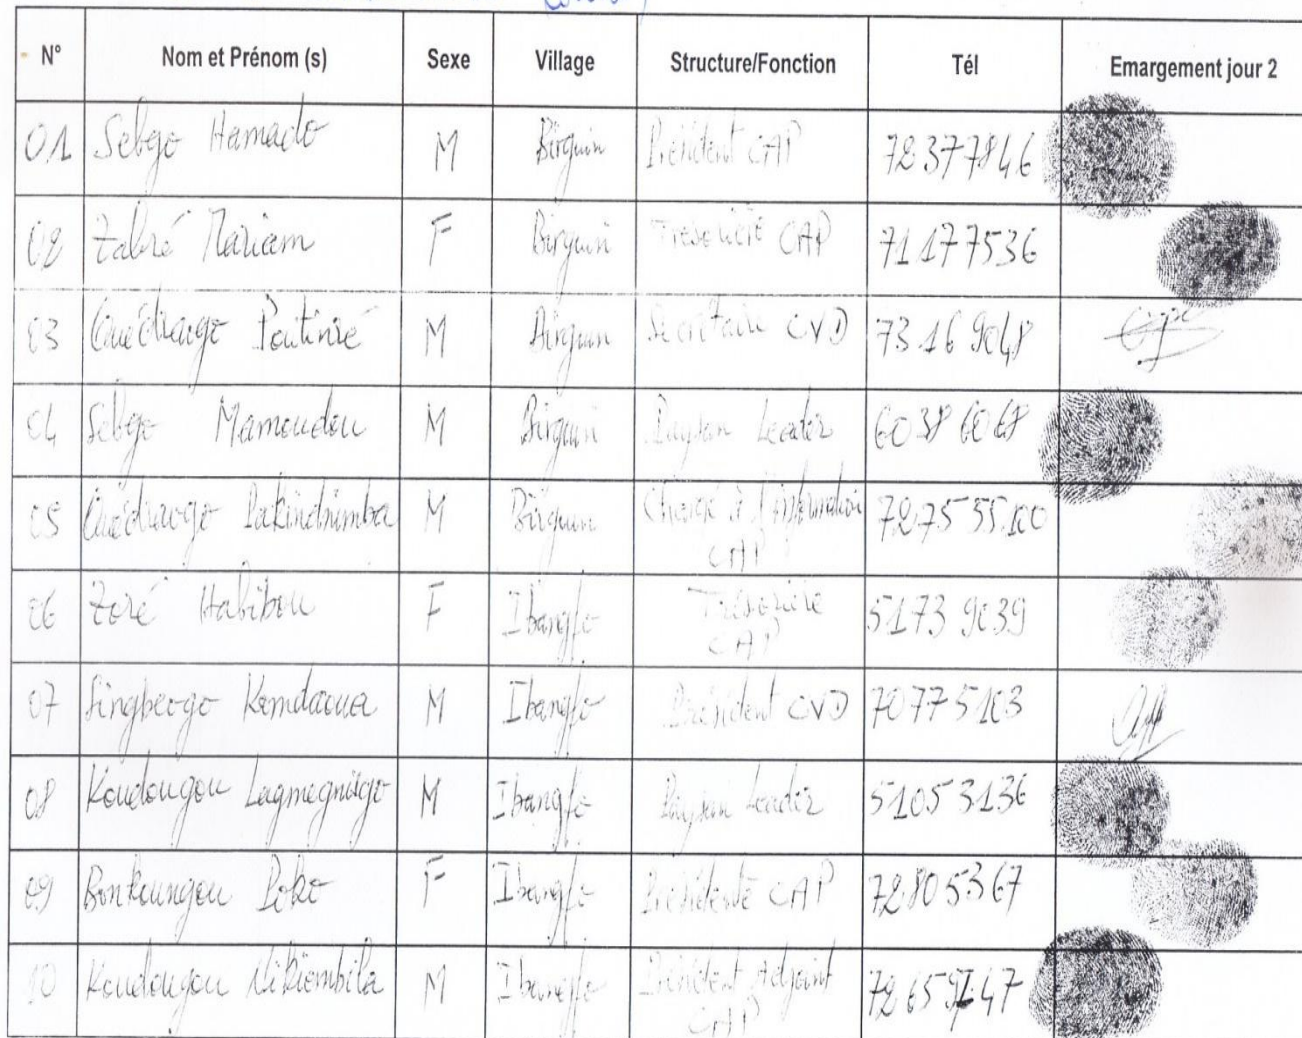 N° Nom et Prénom (s) Sexe Village Structure/Fonction Tél Emargement jour 2
01 Sebgo Hamado M Birguin Président CAP 72377846
02 Zabré Mariam F Birguin Tresorière CAP 71177536
03 Ouédraogo Poutinré M Birguin Secrétaire CVD 73169048
04 Sebgo Mamoudou M Birguin Paysan Leader 60386068
05 Ouédraogo M Birguin Chargé à l'information
CAP
06 Zoré Habibou F Ibangfo Trésorière
CAP 51739039
07 Singbeogo Kamdaoua M Ibangfo Président CVD 70775103
08 Koudougou M Ibangfo Paysan Leader 51053136
09 Bonkoungou Poko F Ibangfo Présidente CAP 72805367
10 Koudougou Nikiembila M Ibangfo Président Adjoint
CAP